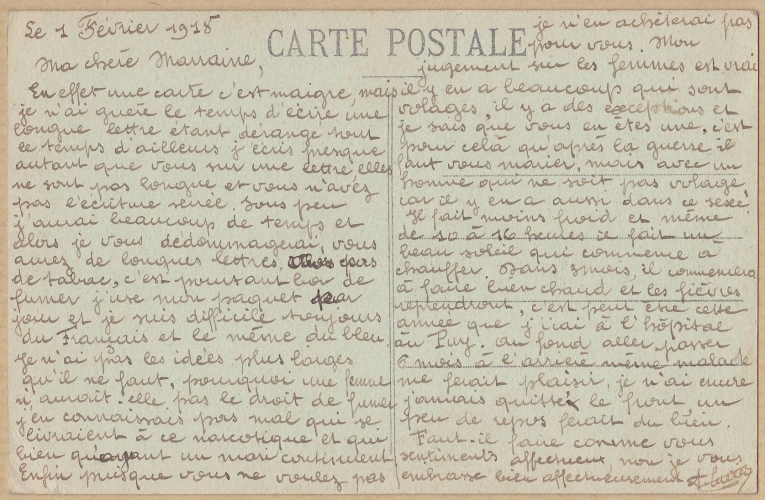 Le 1 Février 1918
CARTE POSTALE
Ma chère Marraine,
En effet une carte c'est maigre, mais
je n'ai guère le temps d'écrire une
longue lettre étant dérangé tout
ce temps d'ailleurs j'écris presque
autant que vous sur une lettre elles
ne sont pas longue et vous n'avez
pas l'écriture serrée. Sous peu
j'aurai beaucoup de temps et
alors je vous dédommagerai, vous
aurez de longues lettres.
de tabac, c'est pourtant bor de
fumer j'use mon paquet par
jour et je suis difficile toujours
du Français et le même du bleu.
Je n'ai pas les idées plus larges
qu'il ne faut, pourquoi une femme
n'aurait-elle pas le droit de fumer
j'en connaissais pas mal qui se
livraient à ce narcotique et qui
bien qu'ayant un mari continuent
Enfin puisque vous ne voulez pas
je n'en achèterai pas
pour vous. Mon
jugement sur les femmes est vrai
il y en a beaucoup qui sont
volages, il y a des exceptions et
je sais que vous en êtes une, c'est
pour celà qu'après la guerre il
faut vous marier, mais avec un
homme qui ne soit pas volage,
car il y en a aussi dans ce sexe.
Il fait moins froid et même
de 10 à 16 heures il fait un
beau soleil qui commence à
chauffer. Dans 3 mois, il commencera
à faire bien chaud et les fièvres
reprendront, c'est peut être cette
année que j'irai à l'hôpital
au Puy. au fond aller passer
6 mois à l'arrière même malade
me ferait plaisir, je n'ai encore
jamais quitté le front un
peu de repos ferait du bien.
Faut-il faire comme vous
sentiments affectueux, non je vous
embrasse bien affectueusement